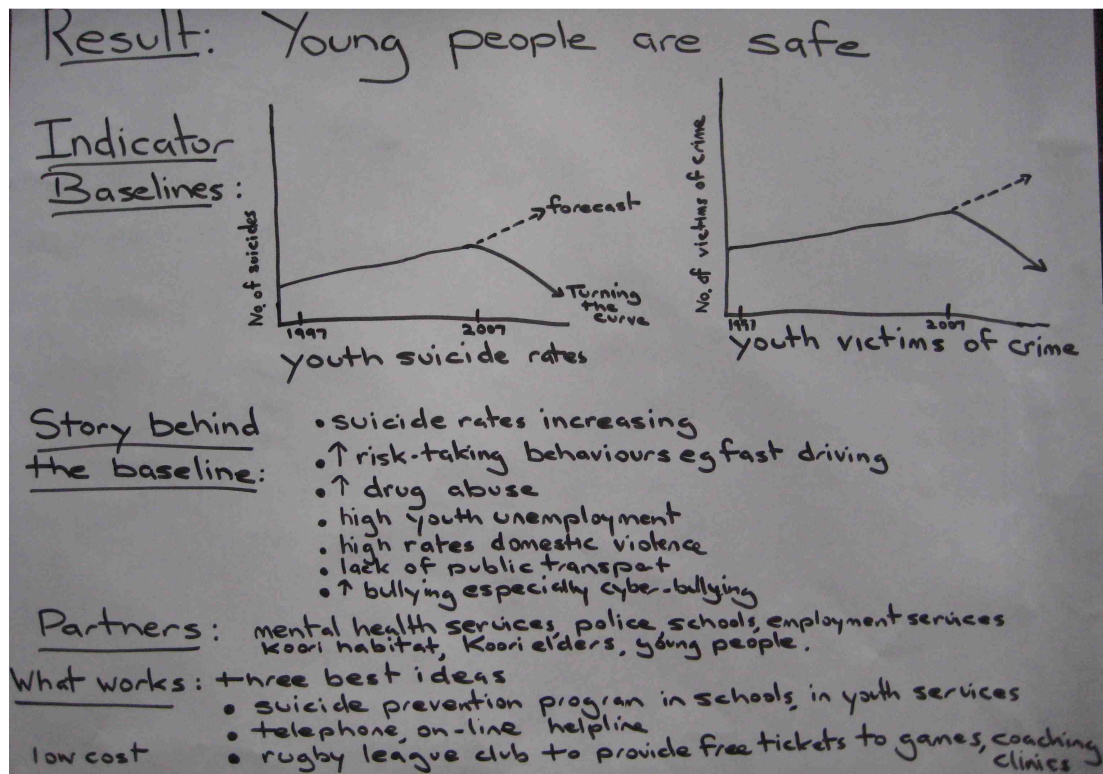 Result: Young people are safe
Indicator
Baselines:
No. of suicides
forecast
Turning
the
curve
1997
2007
youth suicide rates
No. of victims of crime
1997
2007
youth victims of crime
Story behind
the baseline:
• suicide rates increasing
• ↑ risk-taking behaviours eg fast driving
• ↑ drug abuse
• high youth unemployment
• high rates domestic violence
• lack of public transport
• ↑ bullying especially cyber-bullying
Partners: mental health services, police, schools, employment services
Koori habitat, Koori elders, young people.
What works: three best ideas
• suicide prevention program in schools, in youth services
• telephone, on-line helpline
low cost • rugby league club to provide free tickets to games, coaching
clinics